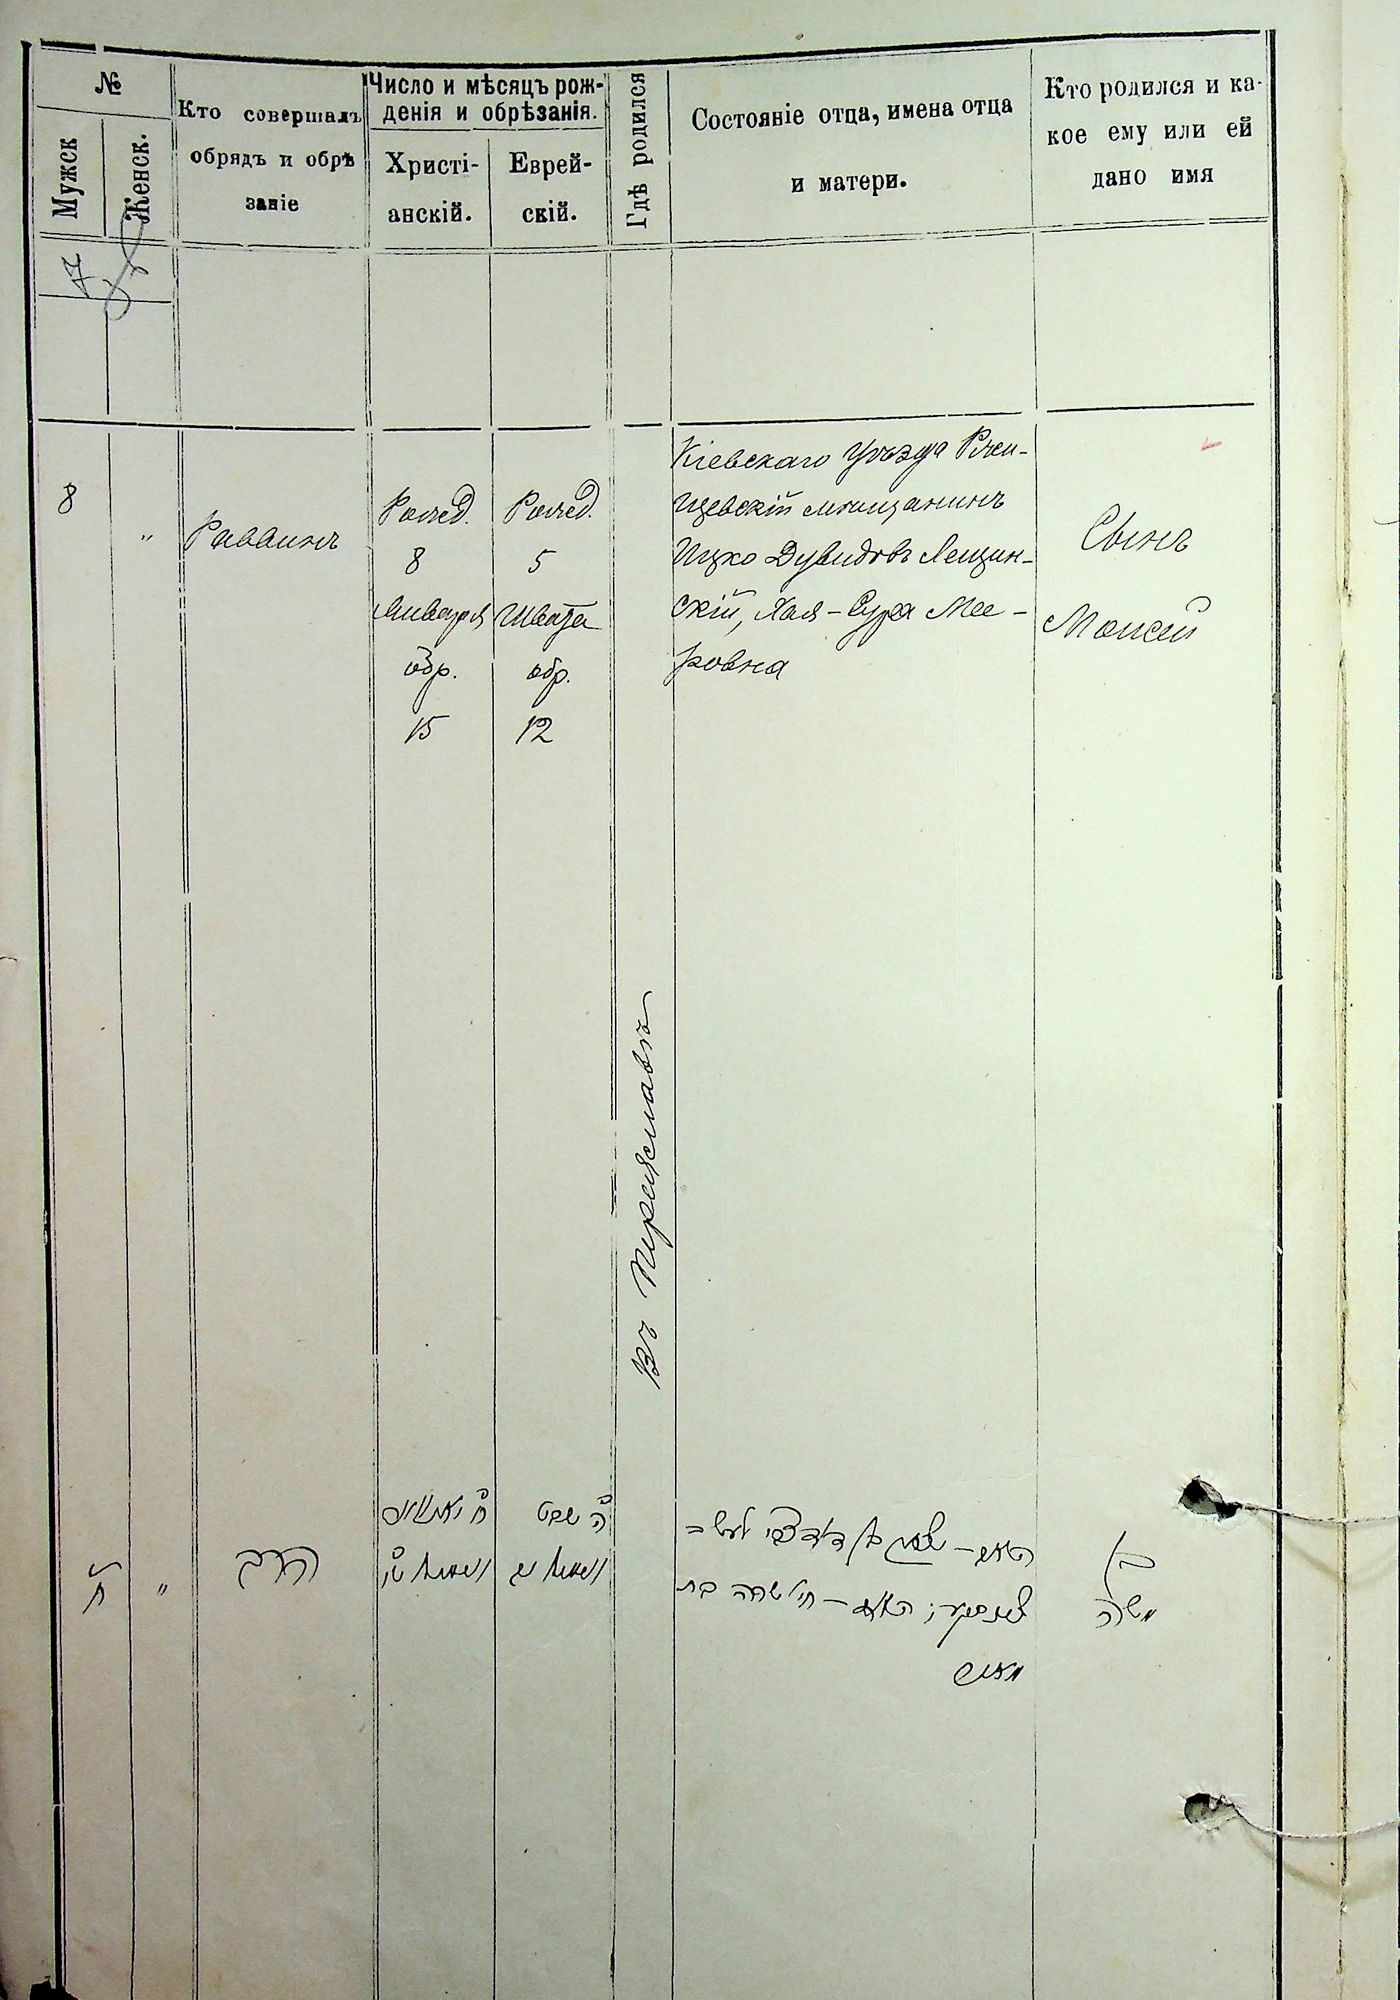 №
Мужск
Женск.
Кто совершалъ
обрядъ и обрѣ
заніе
Число и мѣсяцъ рож-
денія и обрѣзанія.
Христі-
анскій.
Еврей-
скій.
Гдѣ родился
Состояніе отца, имена отца
и матери.
Кто родился и ка-
кое ему или ей
дано имя
7
8
"
Раввинъ
Рожд.
8
Января
обр.
15
Рожд.
5
Швата
обр.
12
Въ Переяславѣ
Кіевскаго уѣзда Ржи-
щевскій мѣщанинъ
Ицко Дувидовъ Лещин-
скій, Хая-Сура Мее-
ровна
Сынъ
Моисей
ח
"
הרב
ח
ה שבט
האם – חי' שרה בת
מאיר
בן
משה